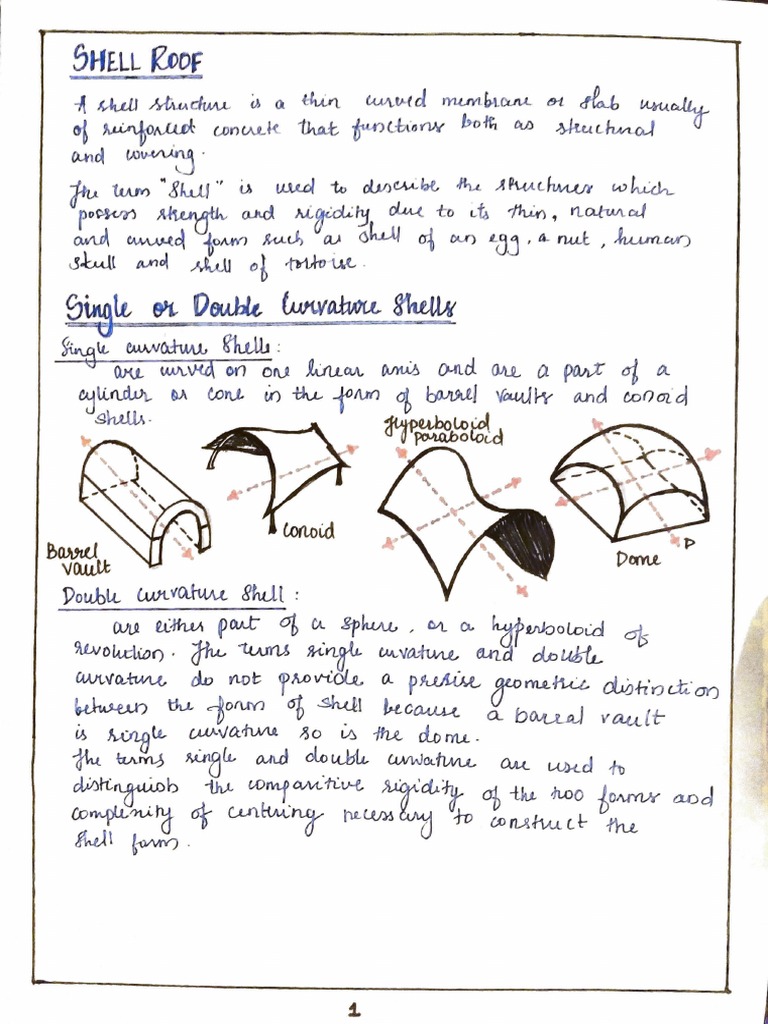 SHELL ROOF
A shell structure is a thin curved membrane or slab usually
of reinforced concrete that functions both as structural
and covering.
The term "Shell" is used to describe the structures which
possess strength and rigidity due to its thin, natural
and curved form such as shell of an egg, a nut, human
skull and shell of tortoise.
Single or Double Curvature Shells
Single curvature Shells:
are curved on one linear axis and are a part of a
cylinder or cone in the form of barrel vaults and conoid
shells.
Hyperboloid
paraboloid
Conoid
Barrel
vault
Dome
Double curvature Shell :
are either part of a sphere, or a hyperboloid of
revolution. The terms single curvature and double
curvature do not provide a precise geometric distinction
between the form of shell because a barral vault
is single curvature so is the dome.
The terms single and double curvature are used to
distinguish the comparitive rigidity of the two forms and
complexity of centring necessary to construct the
shell form.
1